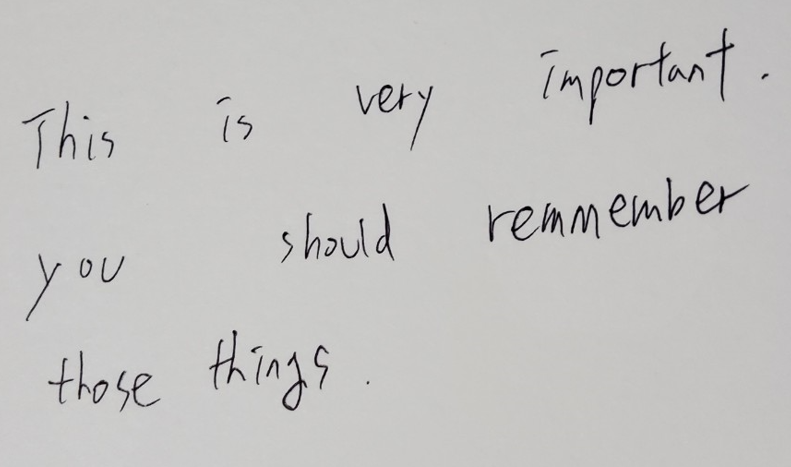 This is very important.
you should remmember
those things.